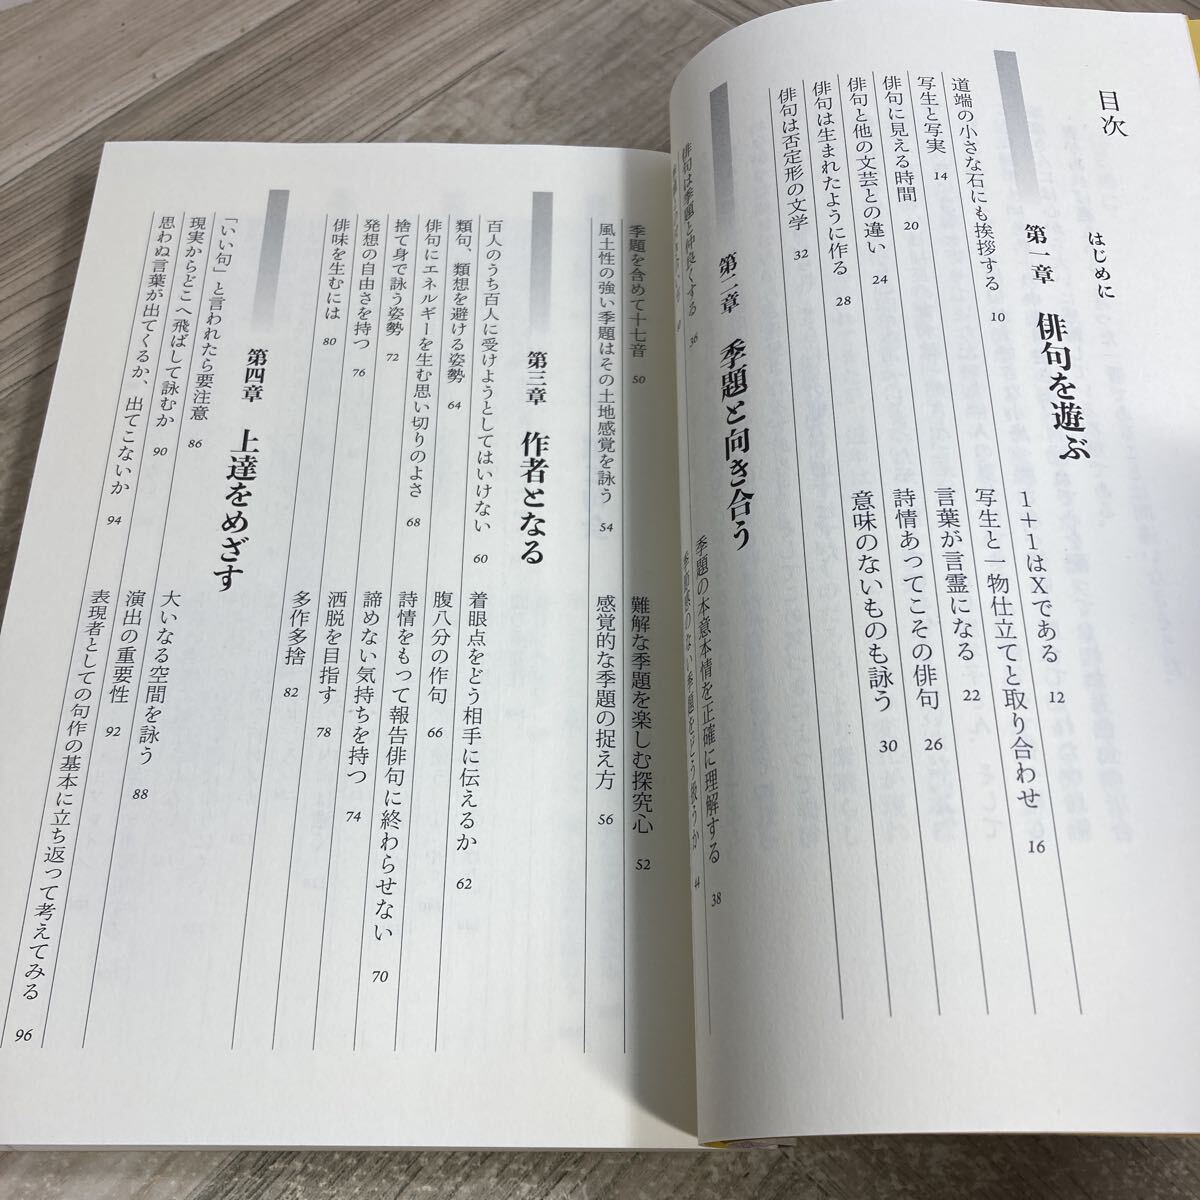 目次
はじめに
第一章　俳句を遊ぶ
道端の小さな石にも挨拶する　10
1＋1はXである　12
写生と写実　14
写生と一物仕立てと取り合わせ　16
俳句に見える時間　20
言葉が言霊になる　22
俳句と他の文芸との違い　24
詩情あってこその俳句　26
俳句は生まれたように作る　28
意味のないものも詠う　30
俳句は否定形の文学　32
第二章　季題と向き合う
俳句は季題と仲良くする　36
季題の本意本情を正確に理解する　38
季節感のない季題をどう扱うか　44
季題を含めて十七音　50
難解な季題を楽しむ探究心　52
風土性の強い季題はその土地感覚を詠う　54
感覚的な季題の捉え方　56
第三章　作者となる
百人のうち百人に受けようとしてはいけない　60
着眼点をどう相手に伝えるか　62
類句、類想を避ける姿勢　64
腹八分の作句　66
俳句にエネルギーを生む思い切りのよさ　68
詩情をもって報告俳句に終わらせない　70
捨て身で詠う姿勢　72
諦めない気持ちを持つ　74
発想の自由さを持つ　76
洒脱を目指す　78
俳味を生むには　80
多作多捨　82
第四章　上達をめざす
「いい句」と言われたら要注意　86
大いなる空間を詠う　88
現実からどこへ飛ばして詠むか　90
演出の重要性　92
思わぬ言葉が出てくるか、出てこないか　94
表現者としての句作の基本に立ち返って考えてみる　96